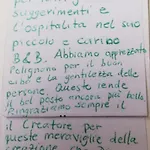 suggerimenti e
l'ospitalità nel suo
piccolo e carino
B&B. Abbiamo apprezzato
Pelignano per il buon
cibo e la gentiletta delle
persone. Queste rende
il bel posto ancora più bello
Ringratiamo sempre il
il Creatore per
queste meraviglie della
creazione che